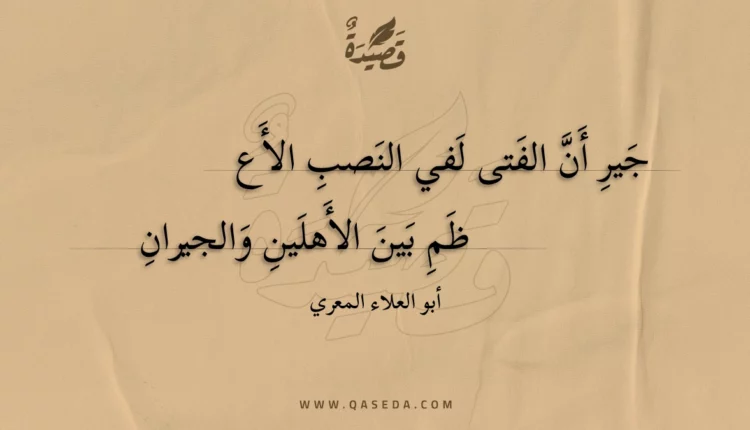 قَصِيْدَةٌ
جَيرِ أَنَّ الفَتى لَفي النَصبِ الأَع
ظَمِ بَينَ الأَهلَينِ وَالجيرانِ
أبو العلاء المعري
WWW.QASEDA.COM